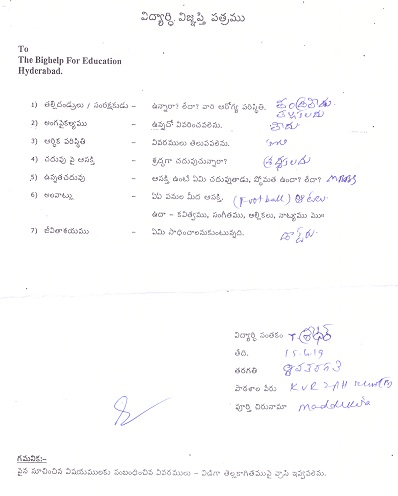 విద్యార్థి విజ్ఞప్తి పత్రము
To
The Bighelp For Education
Hyderabad.
1) తల్లిదండ్రులు / సంరక్షకుడు – ఉన్నారా? లేదా? వారి ఆరోగ్య పరిస్థితి. తండ్రిలేడు.
తల్లికలదు
2) అంగవైకల్యము – ఉన్నదో వివరించవలెను. లేదు
3) ఆర్థిక పరిస్థితి – వివరములు తెలుపవలెను.
4) చదువు పై ఆసక్తి – శ్రద్ధగా చదువుచున్నారా? శ్రద్ధకలదు
5) ఉన్నతచదువు – ఆసక్తి ఉంటే ఏమి చదువుతాడు, స్తోమత ఉందా? లేదా? MBBS
6) అలవాట్లు – ఏఏ పనుల మీద ఆసక్తి. (Foot ball) ఆటలు
ఉదా – కవిత్వము, సంగీతము, అల్లికలు, నాట్యము ము॥
7) జీవితాశయము – ఏమి సాధించాలనుకుంటున్నది. డాక్టరు.
విద్యార్థి సంతకం T.శ్రీధర్
తేది. 15.6.19
తరగతి
పాఠశాల పేరు KVR ZPH
పూర్తి చిరునామా Madduluru
గమనిక:–
పైన సూచించిన విషయములకు సంబంధించిన వివరములు – విడిగా తెల్లకాగితముపై వ్రాసి ఇవ్వవలెను.